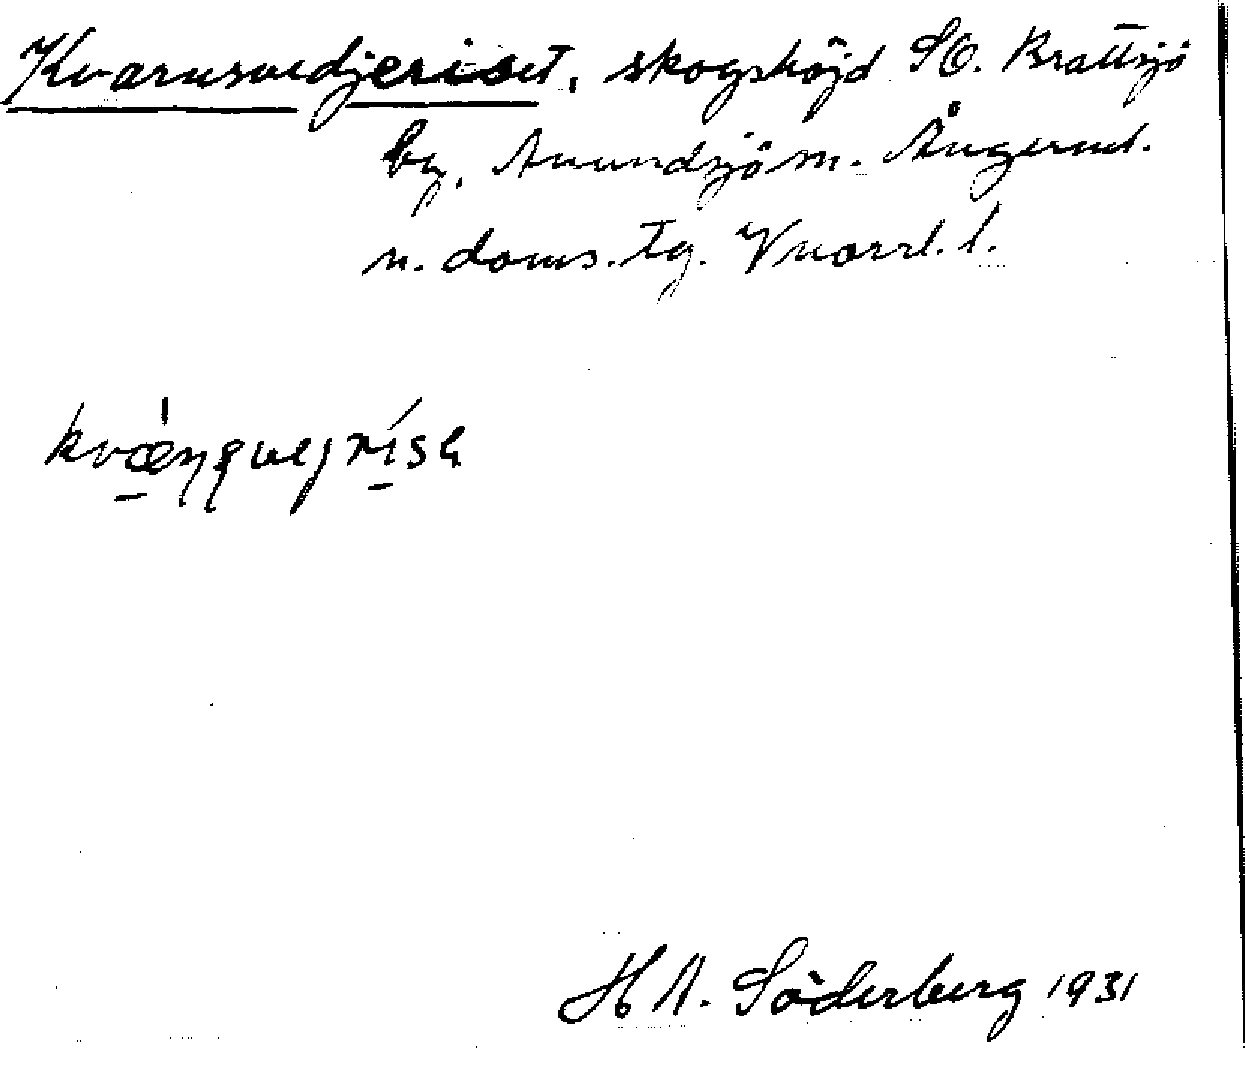 Kvarnsvedjeriset, skogshöjd SO. Brattsjö
by, Anundsjö sn. Ångerml.
n. doms. tg. Vnorrl. l.
H A. Söderberg 1931